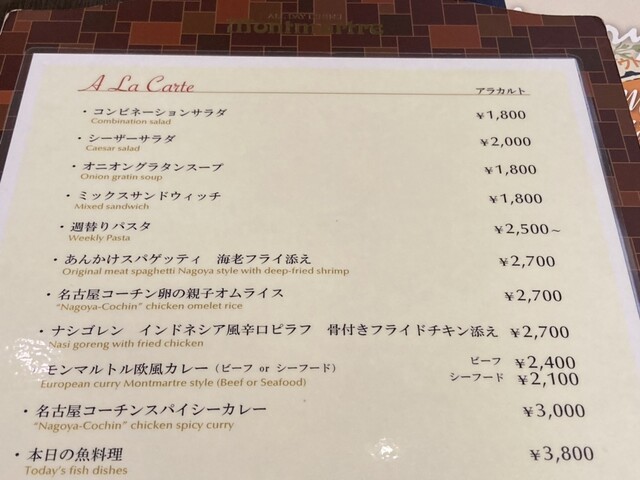 montmartre
A La Carte
アラカルト
・コンビネーションサラダ ¥1,800
Combination salad
・シーザーサラダ ¥2,000
Caesar salad
・オニオングラタンスープ ¥1,800
Onion gratin soup
・ミックスサンドウィッチ ¥1,800
Mixed sandwich
・週替りパスタ ¥2,500~
Weekly Pasta
・あんかけスパゲッティ 海老フライ添え ¥2,700
Original meat spaghetti Nagoya style with deep-fried shrimp
・名古屋コーチン卵の親子オムライス ¥2,700
"Nagoya-Cochin" chicken omelet rice
・ナシゴレン インドネシア風辛口ピラフ 骨付きフライドチキン添え ¥2,700
Nasi goreng with fried chicken
モンマルトル欧風カレー(ビーフ or シーフード) ビーフ ¥2,400
シーフード ¥2,100
European curry Montmartre style (Beef or Seafood)
・名古屋コーチンスパイシーカレー ¥3,000
"Nagoya-Cochin" chicken spicy curry
・本日の魚料理 ¥3,800
Today's fish dishes